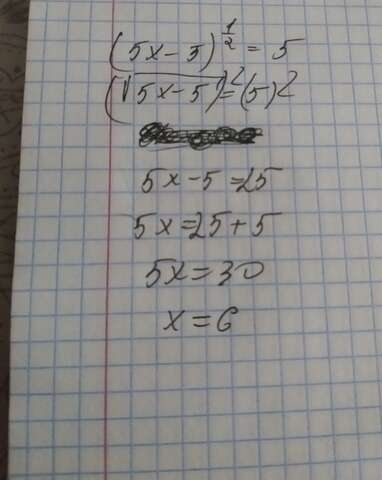 (5x-5)^{1/2} = 5
(√5x-5)²=(5)²
5x-5=25
5x=25+5
5x=30
x=6